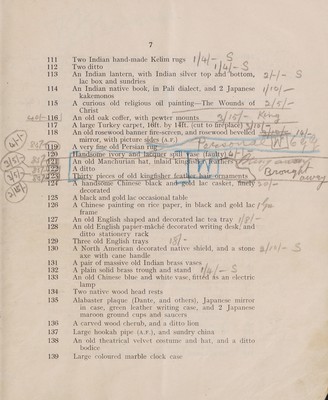 7
111 Two Indian hand-made Kelim rugs 1/4/- S
112 Two ditto 1/4/- S
113 An Indian lantern, with Indian silver top and bottom, 2/-/- S
lac box and sundries
114 An Indian native book, in Pali dialect, and 2 Japanese 1/10/-
kakemonos
115 A curious old religious oil painting—The Wounds of 2/5/-
Christ
116 An old oak coffer, with pewter mounts 2/15/-
117 A large Turkey carpet, 16ft. by 14ft. (cut to fireplace)
118 An old rosewood banner fire-screen, and rosewood bevelled
mirror, with picture sides (A.F.)
119 A very fine old Persian rug
120 Handsome ivory and lacquer spill vase (faulty)
121 An old Manchurian hat, inlaid kingfisher feathers
122 A ditto
123 Thirty pieces of old kingfisher feather hair ornaments
124 A handsome Chinese black and gold lac casket, finely
decorated
125 A black and gold lac occasional table
126 A Chinese painting on rice paper, in black and gold lac
frame
127 An old English shaped and decorated lac tea tray
128 An old English papier-mâché decorated writing desk, and
ditto stationery rack
129 Three old English trays
130 A North American decorated native shield, and a stone
axe with cane handle
131 A pair of massive old Indian brass vases
132 A plain solid brass trough and stand 1/4/- S
133 An old Chinese blue and white vase, fitted as an electric
lamp
134 Two native wood head rests
135 Alabaster plaque (Dante, and others), Japanese mirror
in case, green leather writing case, and 2 Japanese
maroon ground cups and saucers
136 A carved wood cherub, and a ditto lion
137 Large hookah pipe (A.F.), and sundry china
138 An old theatrical velvet costume and hat, and a ditto
bodice
139 Large coloured marble clock case